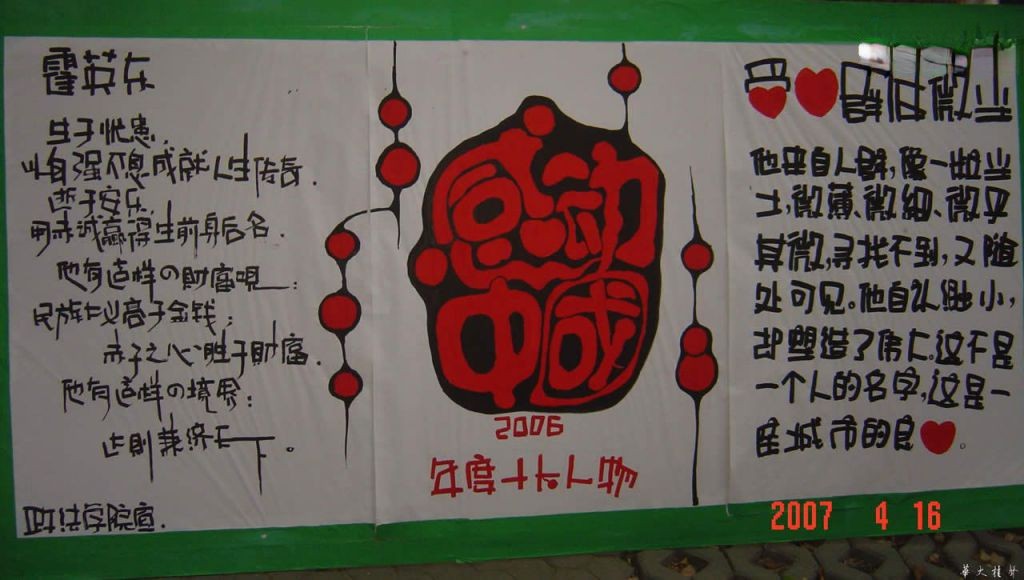 霍英东
生于忧患,
以自强不息成就人生传奇.
逝于安乐
用赤诚赢得生前身后名.
他有这样の財富观:
民族仁义高于金钱;
赤子之心胜于財富.
他有这样の境界:
达則兼济天下。
政法学院宣.
感动
中國
2006
年度十大人物
微尘
他来自人群,像一粒尘
土,微薄、微细、微乎
其微,寻找不到,又随
处可见。他自认渺小,
却塑造了伟大。这不是
一个人的名字,这是一
座城市的良❤。
2007 4 16